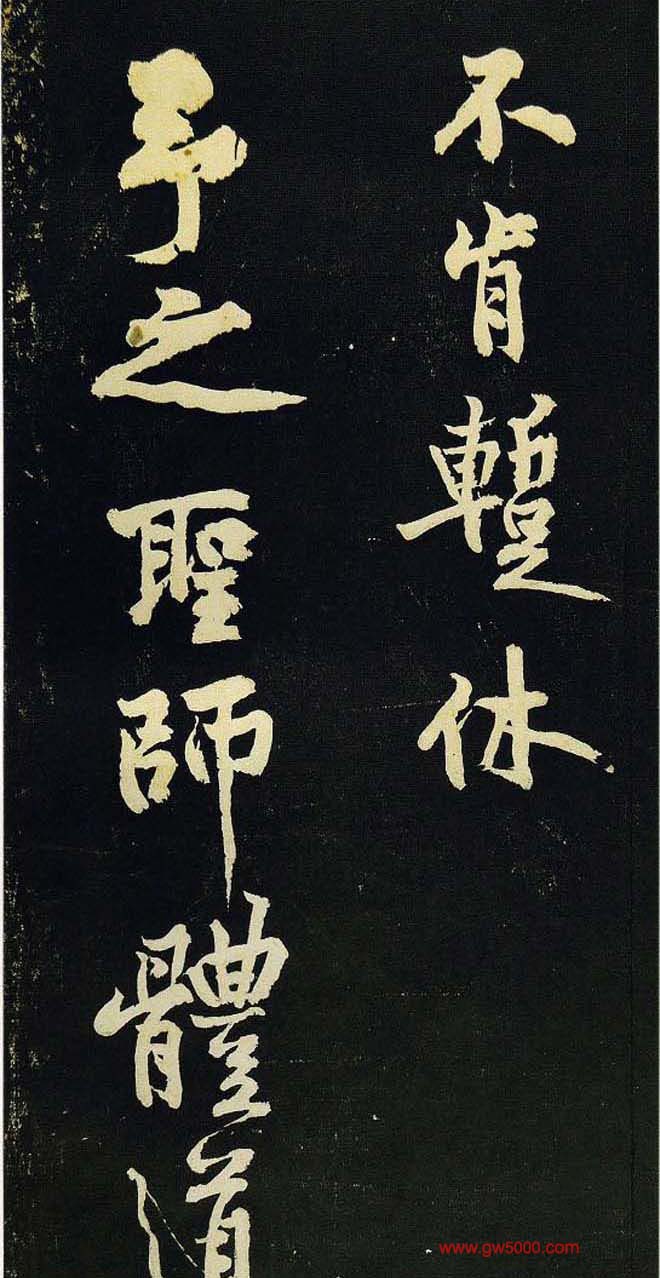 不肯暫休
予之聖師體道
www.gw5000.com